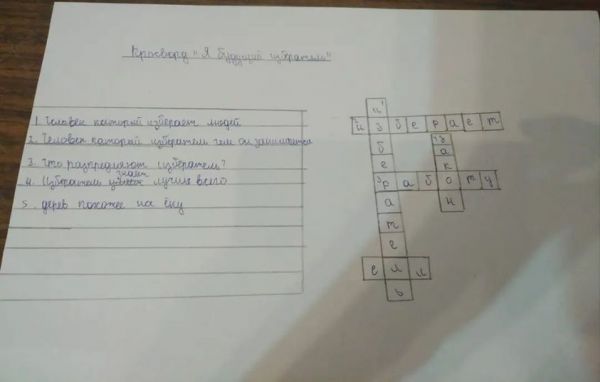 Кросворд "Я будущий избратель"
1. Человек каторый избераем людей
2. Человек каторый избератель чем он занимаится
3. Что разпределяют избератель?
4. Избератель знает лучше всего
5. дерев похожее на ёлку
и з б е р а е т
и з б е р а т е л ь
з а к о н
р а б о т у
е л л